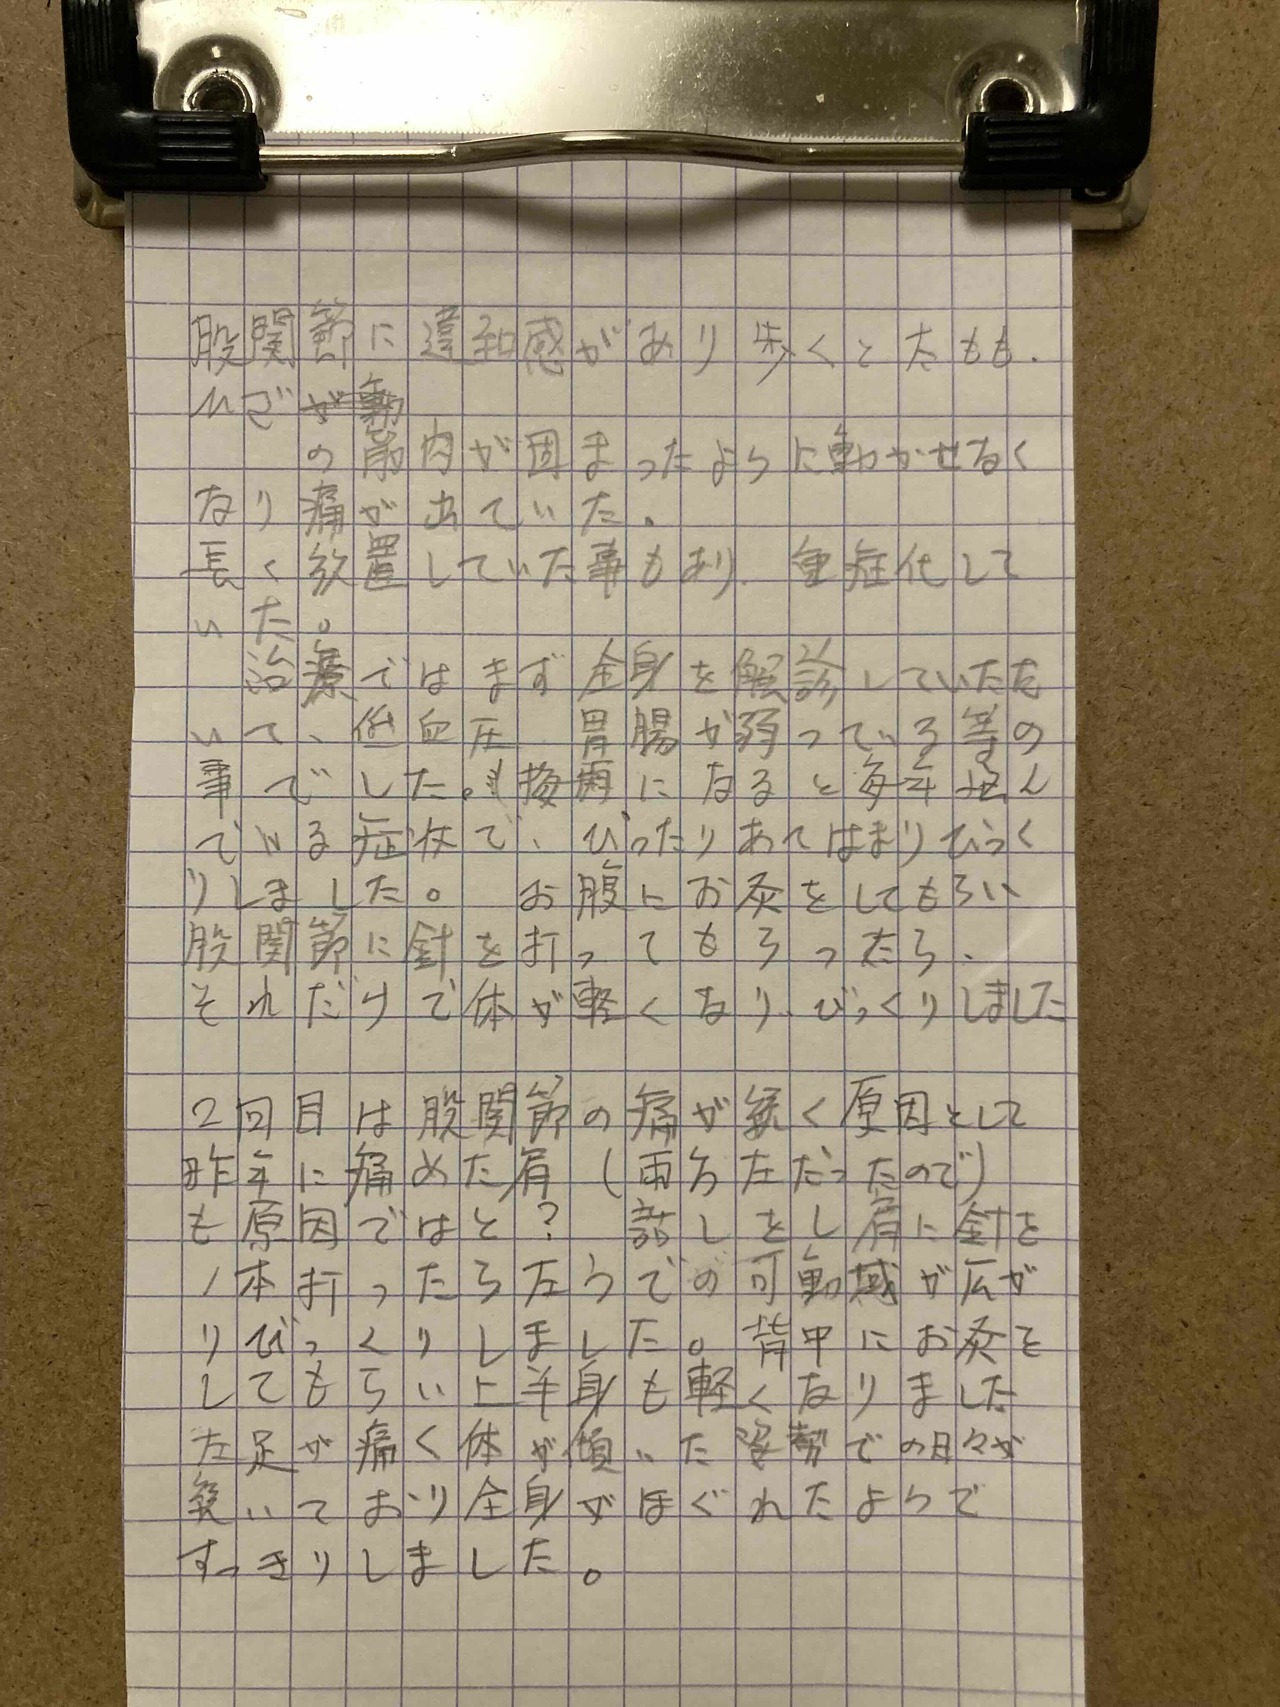 股関節に違和感があり歩くと太もも.
ひざが動
の筋肉が固まったように動かせなく
なり痛が出ていた。
長く放置していた事もあり、重症化して
いた。
治療ではまず全身を診していただ
いて、低血圧 胃腸が弱っている等の
事でした。梅雨になると毎年悩ん
でいる症状で、ぴったりあてはまりびっく
りしました。 お腹にお灸をしてもらい
股関節に針を打ってもらったら、
それだけで体が軽くなり、びっくりしました
2回目は股関節の痛が続く原因として
昨年に痛めた肩 (両方左だったので)
も原因ではと? 話しをし肩に針を
1本打ったら左うでの可動域が広が
りびっくりしました。背中にお灸を
してもらい上半身も軽くなりました
左足が痛く体が傾いた姿勢での日々が
続いており全身がほぐれたようで
すっきりしました。